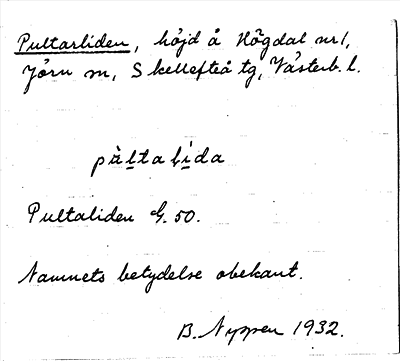 Pultarliden, höjd å Högdal nr 1,
Jörn sn, Skellefteå tg, Västerb. l.
pàltalida
Pultaliden G. 50.
Namnets betydelse obekant.
B. Nyppen 1932.